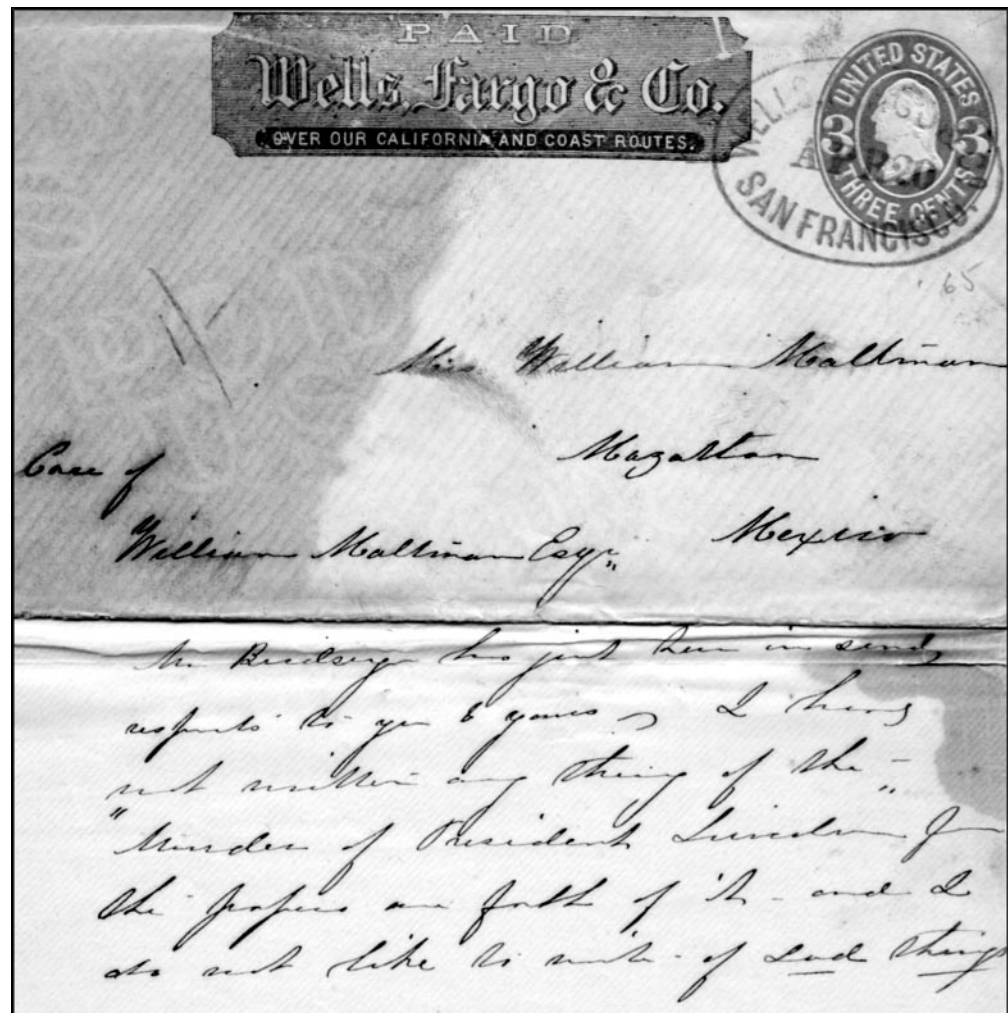 PAID
Wells, Fargo & Co.
OVER OUR CALIFORNIA AND COAST ROUTES.
UNITED STATES
3 3
THREE CENTS
WELLS
APR 20
SAN FRANCISCO
65
William Maltman
Mazatlan
Care of
William Maltman Esqr
Mexico
Mr has just been in sends
respects to you & yours I have
not written any thing of the
"Murder of President Lincoln" for
the papers are full of it - and I
do not like to write of sad things